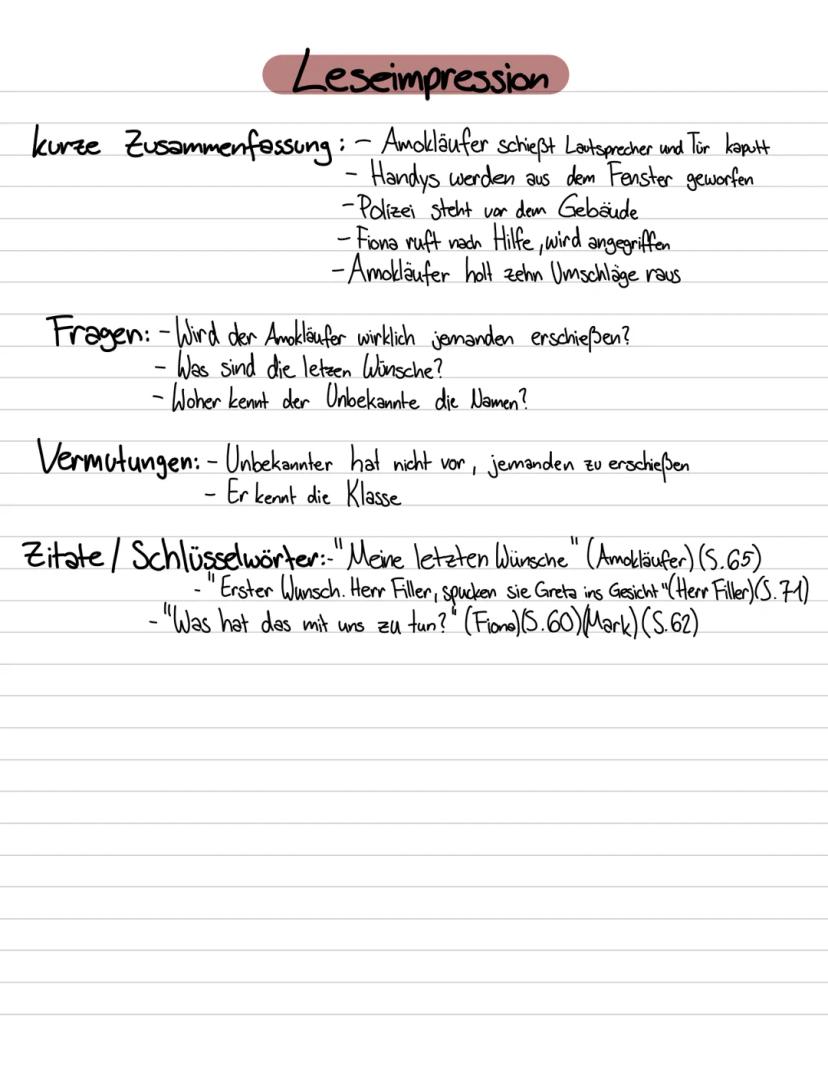 Leseimpression
kurze Zusammenfassung: - Amokläufer schießt Lautsprecher und Tür kaputt
- Handys werden aus dem Fenster geworfen
- Polizei steht vor dem Gebäude
- Fiona ruft nach Hilfe, wird angegriffen
- Amokläufer holt zehn Umschläge raus
Fragen: - Wird der Amokläufer wirklich jemanden erschießen?
- Was sind die letzen Wünsche?
- Woher kennt der Unbekannte die Namen?
Vermutungen: - Unbekannter hat nicht vor, jemanden zu erschießen
- Er kennt die Klasse
Zitate / Schlüsselwörter:- "Meine letzten Wünsche" (Amokläufer) (S.65)
- "Erster Wunsch. Herr Filler, spucken sie Greta ins Gesicht" (Herr Filler) (S.71)
- "Was hat das mit uns zu tun?" (Fiona) (S.60) (Mark) (S.62)